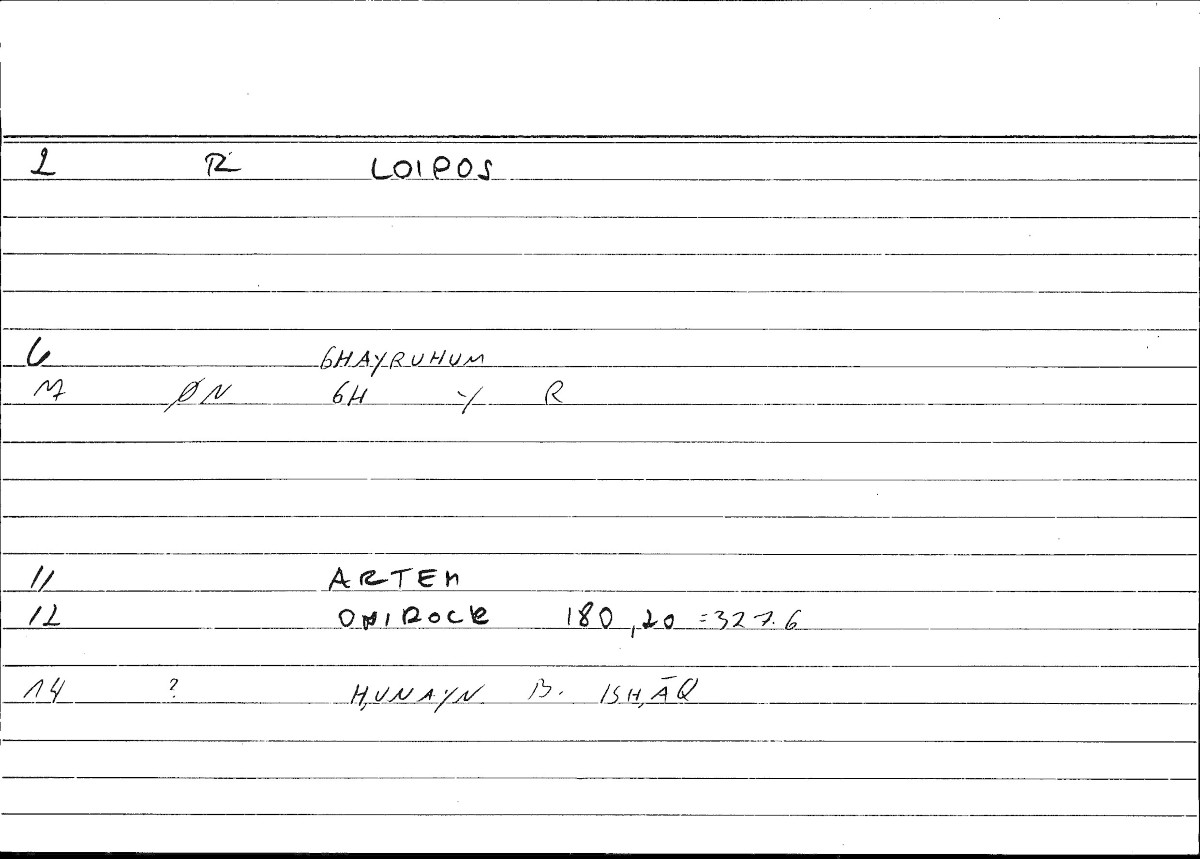 2 R LOIPOS
6 GHAYRUHUM
M ØN GH Y R
11 ARTEM
12 ONIROCR 180,20 =327.6
14 ? H,UNAYN B. ISH,ĀQ